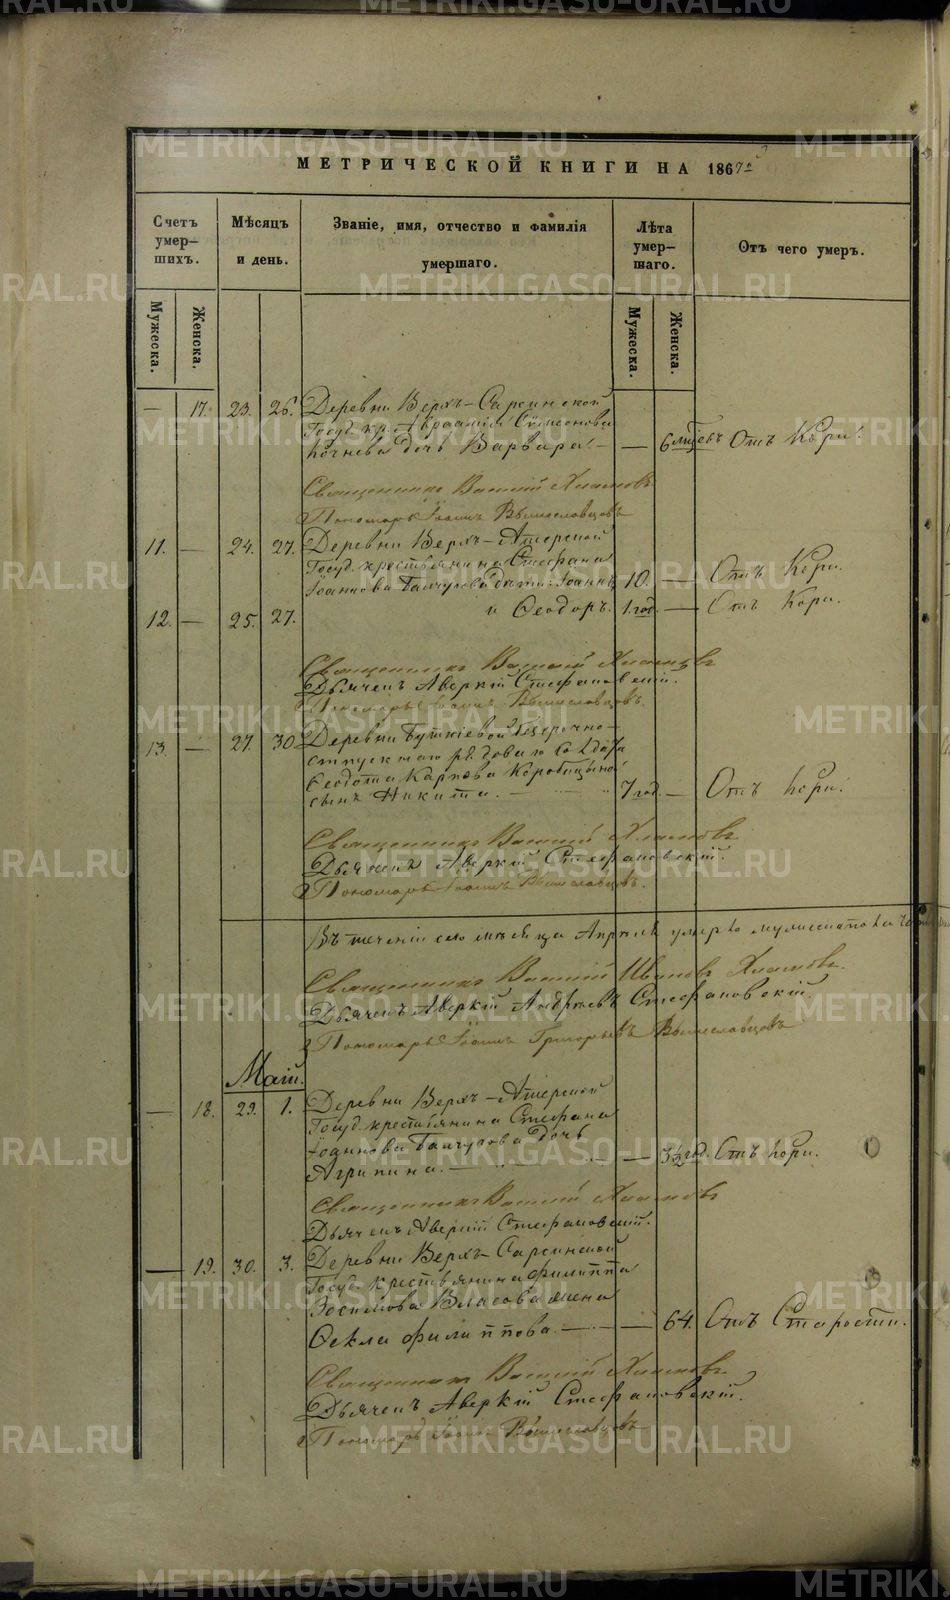 МЕТРИЧЕСКОЙ КНИГИ НА 1867й
Счетъ умер-шихъ.
Мѣсяцъ и день.
Званіе, имя, отчество и фамилія умершаго.
Лѣта умер-шаго.
Отъ чего умеръ.
Мужеска. Женска. Мужеска. Женска.
— 17. 23. 26. Деревни Верхъ-Сарсинской
Госуд. кр. Авраамія Сѵмеонова
дочь Варвара. — — 6 мѣсцевъ Отъ Кори.
Священникъ Василій Хламовъ
Пономарь Іоаннъ Вышеславцовъ
11. — 24. 27. Деревни Верхъ-Атерской
Госуд. крестьянина Стефана
Іоаннова дѣти: Іоаннъ 10. — Отъ Кори.
12. — 25. 27. и Ѳеодоръ. 1. год. — Отъ Кори.
Священникъ Василій Хламовъ
Дьячекъ Аверкій Стефановскій.
Пономарь Іоаннъ Вышеславцовъ.
13. — 27. 30 Деревни Бугкіевой безсрочно-
отпускнаго рядоваго солдата
Ѳеодота Карпова
сынъ Никита. — 7 год. — Отъ Кори.
Священникъ Василій Хламовъ
Дьячекъ Аверкій Стефановскій.
Пономарь Іоаннъ Вышеславцовъ.
Въ теченіи сего мѣсяца Апрѣля умерло мужеска пола
Священникъ Василій Ивановъ Хламовъ.
Дьячекъ Аверкій Андреевъ Стефановскій.
Пономарь Іоаннъ Григорьевъ Вышеславцовъ
Маій.
— 18. 29. 1. Деревни Верхъ-Атерской
Госуд. крестьянина Стефана
Іоаннова дочь
Агрипина. — — 3½ год. Отъ кори.
Священникъ Василій Хламовъ
Дьячекъ Аверкій Стефановскій.
— 19. 30. 3. Деревни Верхъ-Сарсинской
Госуд. крестьянина Филиппа
Зосимова Власова жена
Ѳекла Филиппова. — — 64. Отъ Старости.
Священникъ Василій Хламовъ
Дьячекъ Аверкій Стефановскій.
Пономарь Іоаннъ Вышеславцовъ
METRIKI.GASO-URAL.RU